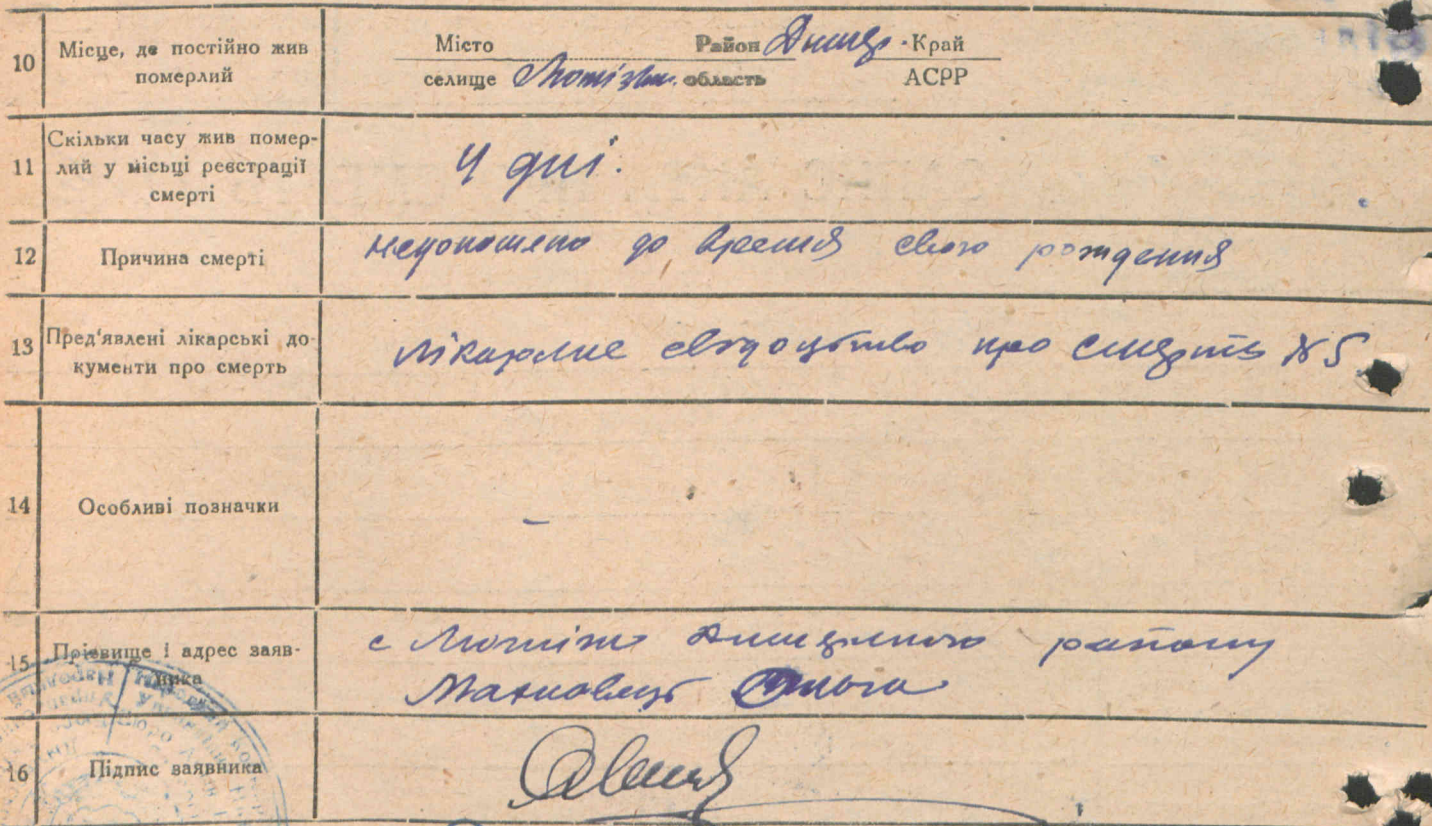 10 Місце, де постійно жив померлий
Місто Район Край
селище область АСРР
11 Скільки часу жив помер-
лий у місьці реєстрації
смерті
4 дні.
12 Причина смерті
недоношено до время свого рождения
13 Пред'явлені лікарські до-
кументи про смерть
лікарське свідоцтво про смерть №5
14 Особливі позначки
-
15 Прізвище і адрес заяв-
ника
с району
Махновець Ольга
16 Підпис заявника